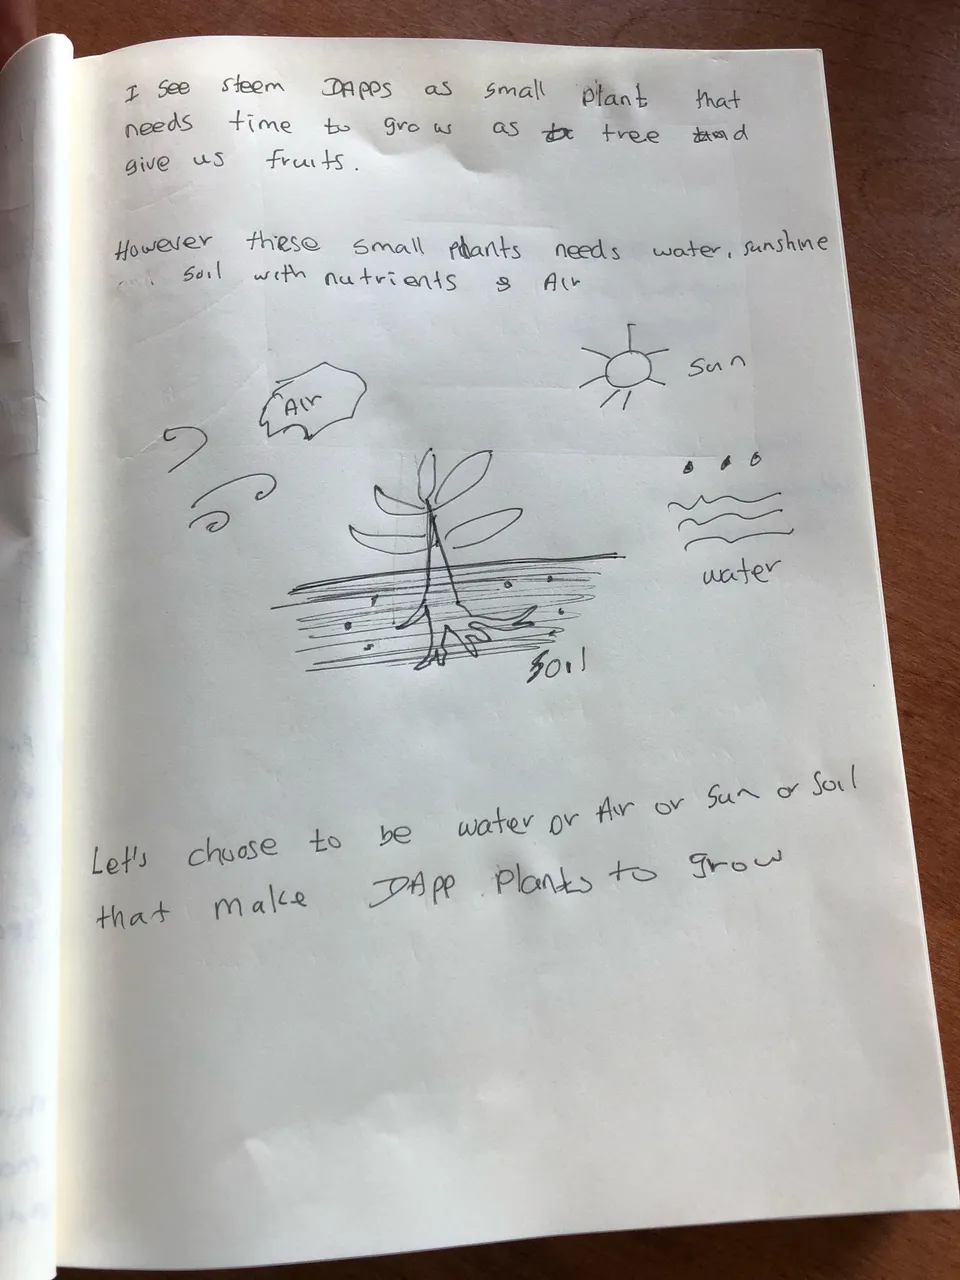 I see steem DAPPS as small plant that
needs time to grow as tree and
give us fruits.
However these small plants needs water, sunshine
soil with nutrients & Air
Sun
Air
water
Soil
Let's choose to be water or Air or Sun or Soil
that make DApp Plants to grow